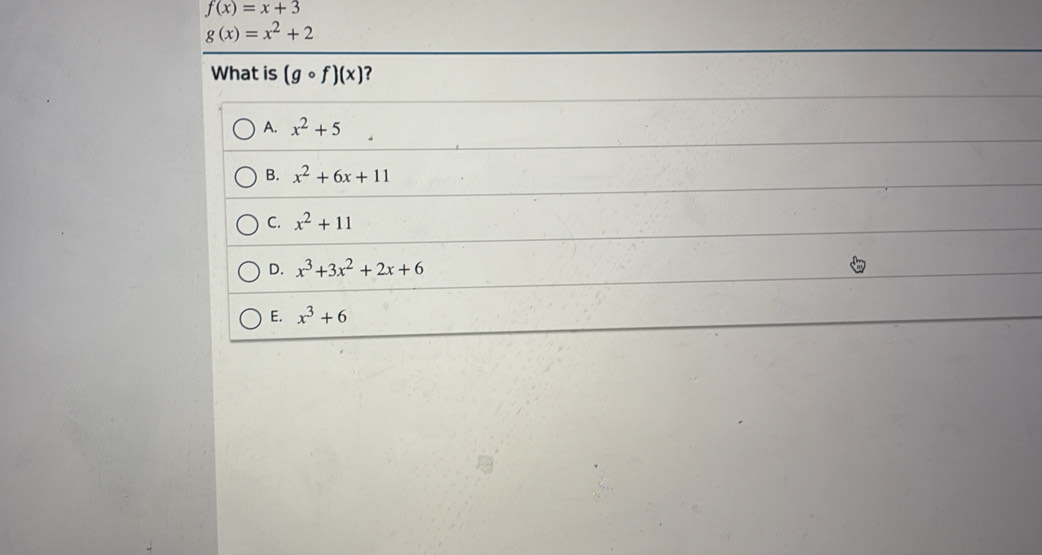 f(x) = x + 3
g(x) = x² + 2
What is (g ∘ f)(x)?
A. x² + 5
B. x² + 6x + 11
C. x² + 11
D. x³+3x² + 2x + 6
E. x³ + 6